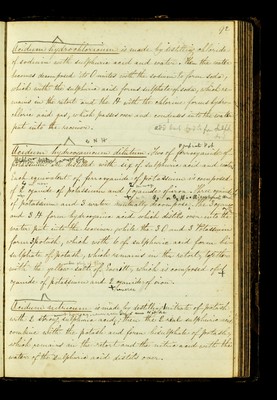 92
Acidum hydrochloricum is made by distilling chloride
of sodium with sulphuric acid and water. Then the water
becomes decomposed, its O unites with the sodium to form soda,
which with the sulphuric acid forms sulphate of soda, which re-
mains in the retort and the H with the chlorine forms hydro-
chloric acid gas, which passes over and condenses in the water
put into the receiver.
Acidum hydrocyanicum dilutum
of sulphuric acid and
each equivalent of ferrocyanide of potassium is composed
of 2 cyanide of potassium and cyanide of iron. Then
of potassium and 3 water mutually decompose, the 3 cyanogen
and 3 H form hydrocyanic acid which distils over into the
water put into the receiver, while the 3 O and 3 Potassium
form 3 potash, which with 6 of sulphuric acid form bi-
sulphate of potash, which remains in the retort, together
with the yellow salt of Everitt, which is composed of
cyanide of potassium and 2 cyanide of iron.
Acidum nitricum is made by distilling nitrate of potash
with 2 sulphuric acid; then the 2 sulphuric acid
combine with the potash and form bisulphate of potash,
which remains in the retort and the nitric acid with the
water of the sulphuric acid distils over.